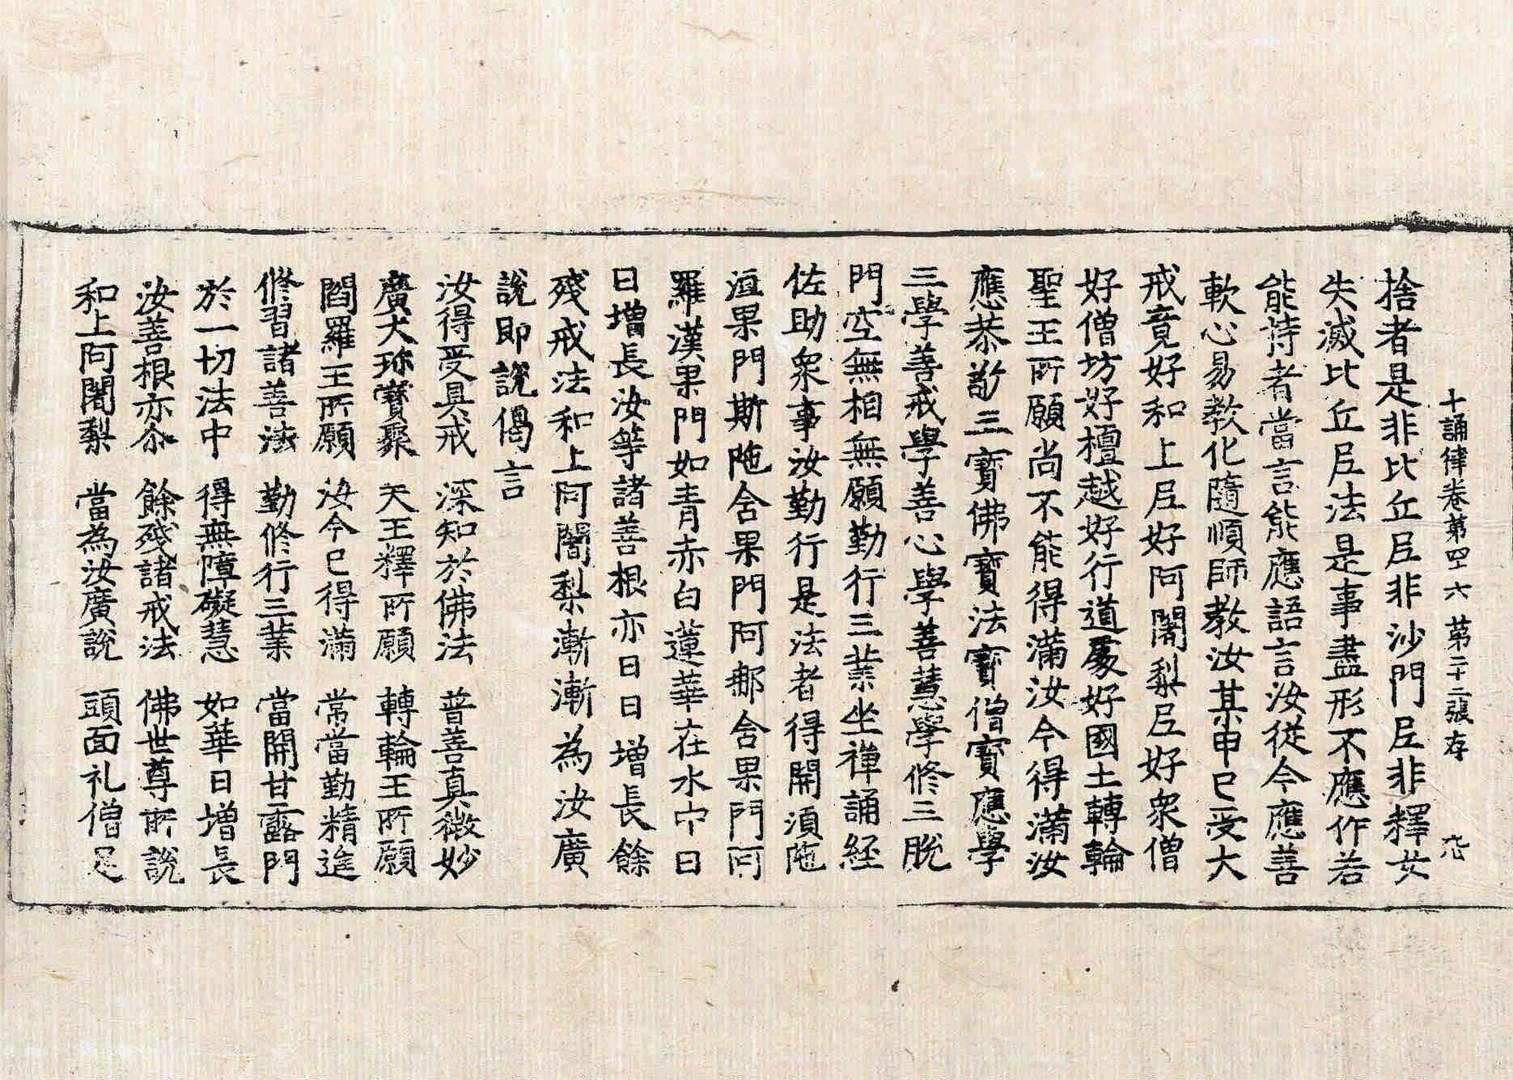 十誦律卷第四六 第二十二張 存
捨者是非比丘尼非沙門尼非釋女
失滅比丘尼法是事盡形不應作若
能持者當言能應語言汝從今應善
軟心易教化隨順師教汝某甲已受大
戒竟好和上尼好阿闍梨尼好衆僧
好僧坊好檀越好行道處好國土轉輪
聖王所願尚不能得滿汝今得滿汝
應恭敬三寶佛寶法寶僧寶應學
三學善戒學善心學善慧學修三脫
門空無相無願勤行三業坐禪誦經
佐助衆事汝勤行是法者得開須陁
洹果門斯陁舍果門阿那舍果門阿
羅漢果門如青赤白蓮華在水中日
日增長汝等諸善根亦日日增長餘
殘戒法和上阿闍梨漸漸為汝廣
說即說偈言
汝得受具戒 深知於佛法 普善真微妙
廣大珎寶聚 天王釋所願 轉輪王所願
閻羅王所願 汝今已得滿 常當勤精進
修習諸善法 勤修行三業 當開甘露門
於一切法中 得無障礙慧 如華日增長
汝善根亦尒 餘殘諸戒法 佛世尊所說
和上阿闍梨 當為汝廣說 頭面礼僧足